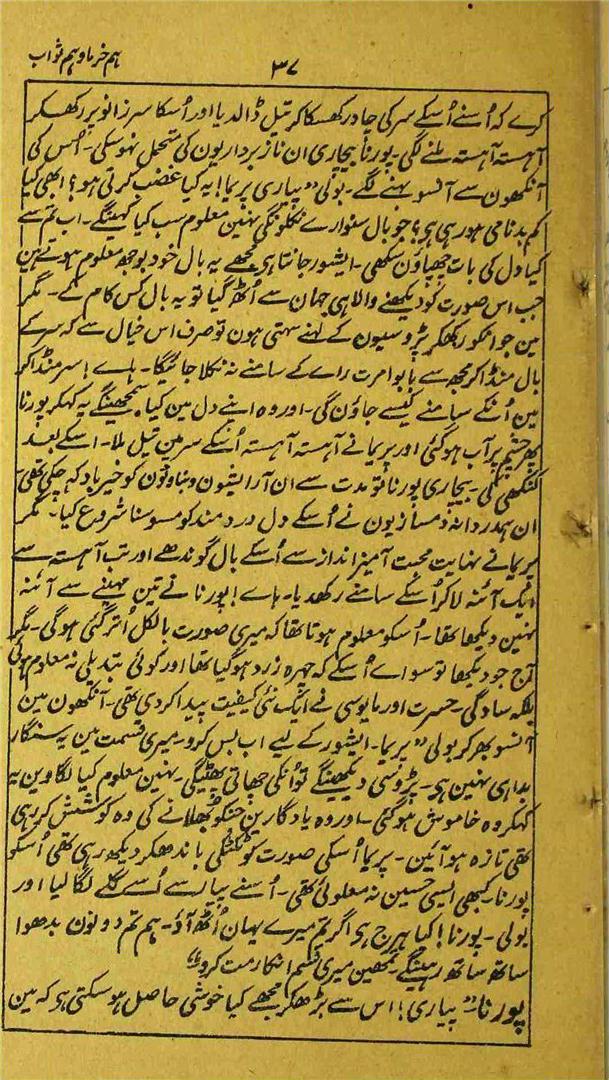 ہم خرما و ہم ثواب
۳۷
کرے کہ اُسنے اُسکے سر کی چادر کھسکا کر تیل ڈالدیا اور اُسکا سر زانو پر رکھکر
آہستہ آہستہ ملنے لگی۔ پورنا بیچاری ان ناز برداریون کی متحمل نہوسکی۔ اُس کی
آنکھون سے آنسو بہنے لگے۔ بولی ”پیاری پریما! یہ کیا غضب کرتی ہو؟ ابھی کیا
کم بدنامی ہو رہی ہی؟ جو بال سنوارے نکلونگی نہین معلوم سب کیا کہینگے۔ اب تم سے
کیا دل کی بات چھپاؤن سکھی۔ ایشور جانتا ہی مجھے یہ بال خود بوجھ معلوم ہوتے ہین
جب اس صورت کو دیکھنے والا ہی جہان سے اُٹھ گیا تو یہ بال کس کام کے۔ مگر
مین جو انکو رکھکر پڑوسیون کے طعنے سہتی ہون تو صرف اس خیال سے کہ سر کے
بال منڈا کر مجھ سے بابو امرت راے کے سامنے نہ نکلا جائیگا۔ ہاے! سر منڈا کر
مین اُنکے سامنے کیسے جاؤن گی۔ اور وہ اپنے دل مین کیا سمجھینگے یہ کہکر پورنا
پھر چشم پر آب ہوگئی اور پریما نے آہستہ آہستہ اُسکے سر مین تیل ملا۔ اسکے بعد
کنگھی کی۔ بیچاری پورنا تو مدت سے ان آرایشون و بناوٹون کو خیرباد کہ چکی تھی۔
ان ہمدردانہ دمسازیون نے اُسکے دل دردمند کو مسوسنا شروع کیا۔ مگر
پریما نے نہایت محبت آمیز انداز سے اُسکے بال گوندھے اور تب آہستہ سے
ایک آئنہ لا کر اُسکے سامنے رکھدیا۔ ہاے! پورنا نے تین مہینے سے آئنہ
نہین دیکھا تھا۔ اُسکو معلوم ہوتا تھا کہ میری صورت بالکل اُتر گئی ہوگی۔ مگر
آج جو دیکھا تو سواے اُسکے کہ چہرہ زرد ہوگیا تھا اور کوئی تبدیلی نہ معلوم ہوئی
بلکہ سادگی۔ حسرت اور مایوسی نے ایک نئی کیفیت پیدا کر دی تھی۔ آنکھون مین
آنسو بھر کر بولی ”پریما۔ ایشور کے لیے اب بس کرو۔ میری قسمت مین یہ سنگار
بدا ہی نہین ہی۔ پڑوسی دیکھینگے تو اُنکی چھاتی پھٹیگی۔ نہین معلوم کیا لگاوین یہ
کہکر وہ خاموش ہوگئی۔ اور وہ یادگارین جنکو بھلانے کی وہ کوشش کر رہی
تھی تازہ ہو آئین۔ پریما اُسکی صورت کو ٹکٹکی باندھکر دیکھ رہی تھی اُسکو
پورنا۔ کبھی ایسی حسین نہ معلوم ہوئی تھی۔ اُسنے پیار سے اُسے گلے لگا لیا اور
بولی۔ پورنا! کیا ہرج ہی اگر تم میرے یہان اُٹھ آؤ۔ ہم تم دونون بدھوا
ساتھ ساتھ رہینگے۔ تمھین میری قسم انکار مت کرو۔“
پورنا۔ ”پیاری! اس سے بڑھکر مجھے کیا خوشی حاصل ہوسکتی ہی کہ مین